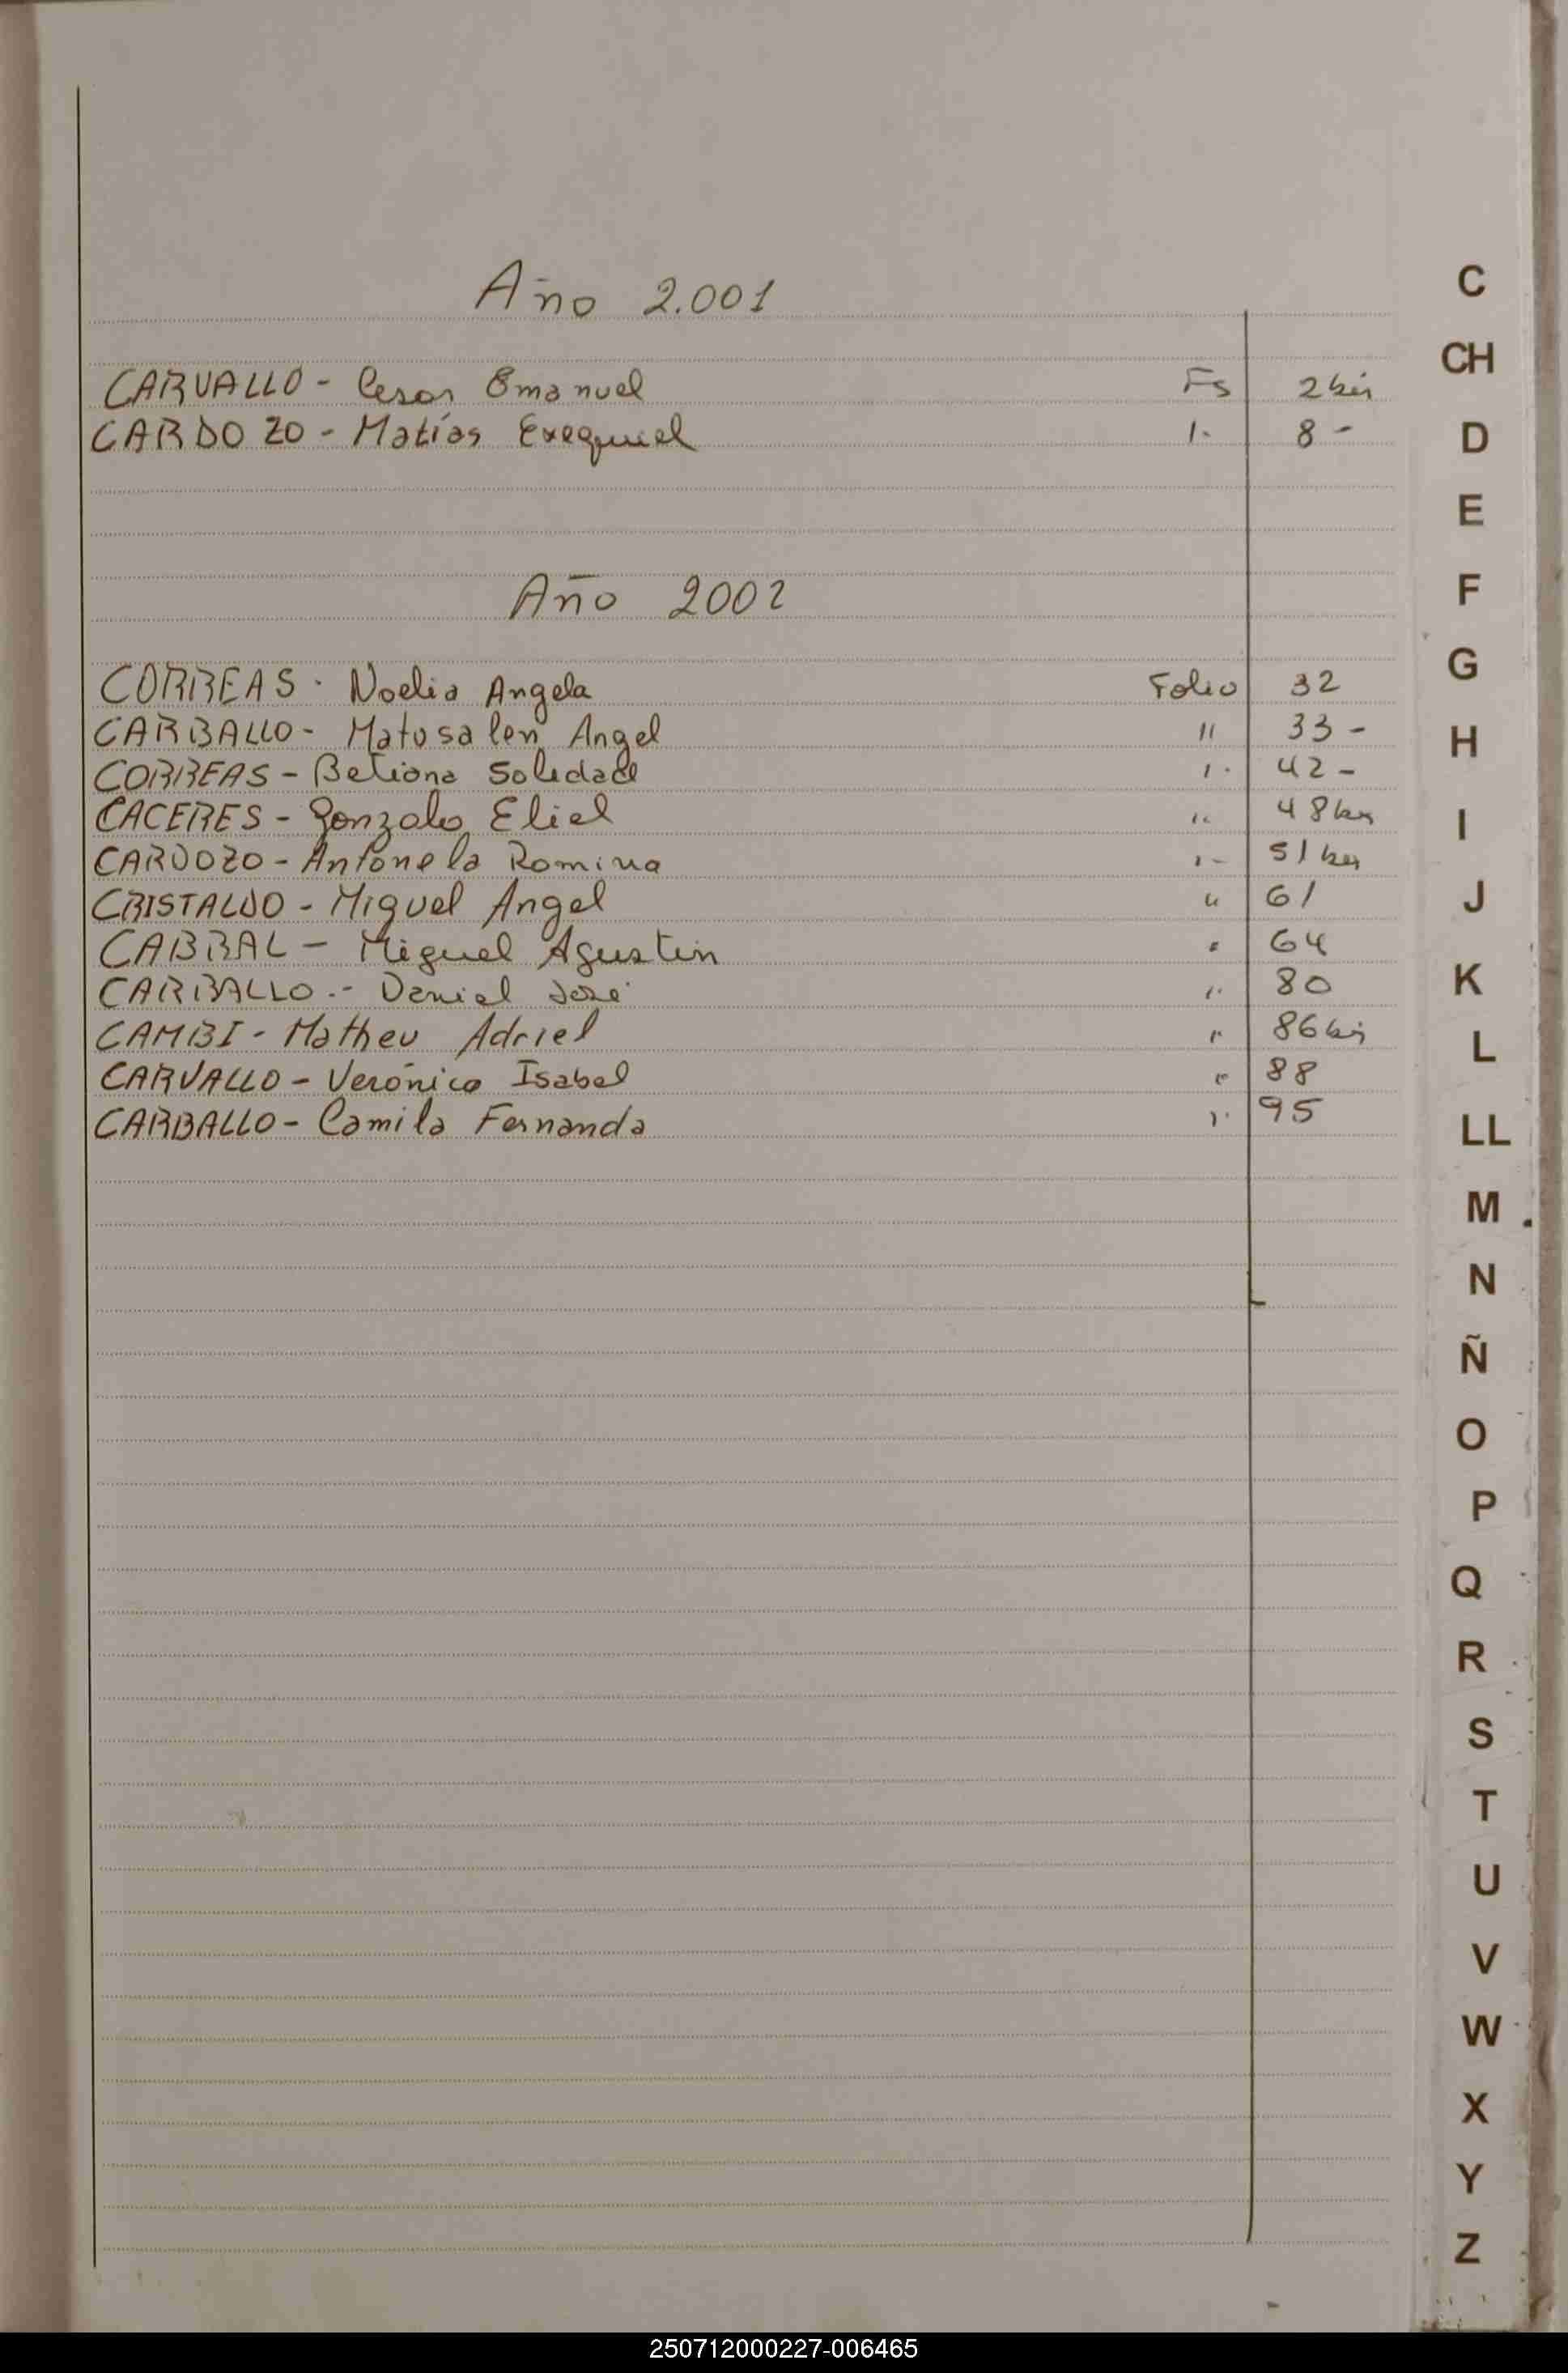 Año 2.001
CARVALLO - Cesar Emanuel Fs 2 bis
CARDOZO - Matías Exequiel 1. 8 -
Año 2002
CORREAS - Noelia Angela Folio 32
CARBALLO - Matusalen Angel " 33 -
CORREAS - Betiana Soledad " 42 -
CACERES - Gonzalo Eliel " 48 bis
CARDOZO - Antonela Romina " 51 bis
CRISTALDO - Miguel Angel " 61
CABRAL - Miguel Agustin " 64
CARBALLO.- Daniel José " 80
CAMBI - Matheu Adriel " 86 bis
CARVALLO - Verónica Isabel " 88
CARBALLO - Camila Fernanda " 95
C
CH
D
E
F
G
H
I
J
K
L
LL
M
N
Ñ
O
P
Q
R
S
T
U
V
W
X
Y
Z
250712000227-006465